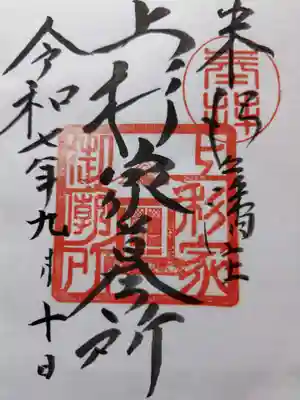 奉拝
米沢
上杉家墓所
上杉家
御廟所
令和七年九月十日